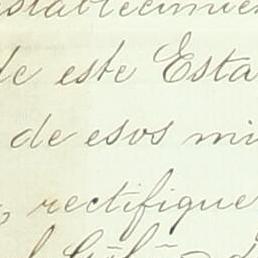 stablecimien
de este Esta
de esos mi
rectifique